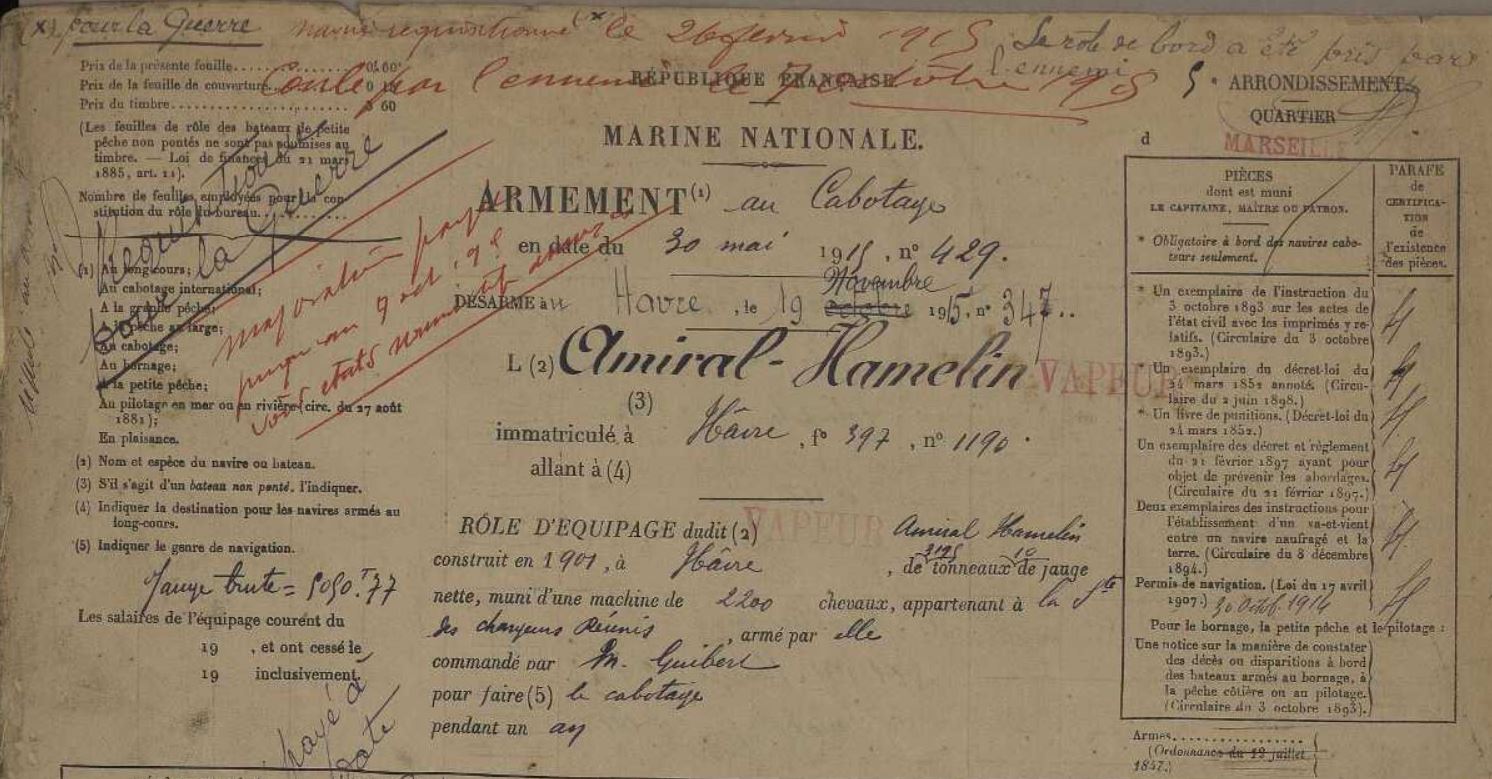 (x) pour la Guerre navire requisitionné (x) le 26 fevrier 1915 Le role de bord a été pris par
l'ennemi
Coulé par l'ennemi le 7 octobre 1915
Prix de la présente feuille. 0f 60c
Prix de la feuille de couverture. 0 15
Prix du timbre. 3 60
(Les feuilles de rôle des bateaux de petite
pêche non pontés ne sont pas soumises au
timbre. — Loi de finances du 21 mars
1885, art. 11).
Nombre de feuilles employées pour la con-
stitution du rôle du bureau.
Requis
pour la Guerre
(1) Au long cours;
Au cabotage international;
A la grande pêche;
A la pêche au large;
Au cabotage;
Au bornage;
A la petite pêche;
Au pilotage en mer ou en rivière (circ. du 27 août
1881);
En plaisance.
(2) Nom et espèce du navire ou bateau.
(3) S'il s'agit d'un bateau non ponté, l'indiquer.
(4) Indiquer la destination pour les navires armés au
long-cours.
(5) Indiquer le genre de navigation.
majoration payée
jusqu'au 9 oct. 9
voir etats
Jauge brute = 5050.T77
Les salaires de l'équipage courent du
19 , et ont cessé le
19 inclusivement.
payé à
RÉPUBLIQUE FRANÇAISE
MARINE NATIONALE.
ARMEMENT (1) au Cabotage
en date du 30 mai 1915, n° 429.
Novembre
DÉSARMÉ au Havre, le 19 octobre 1915, n° 347..
L (2) Amiral-Hamelin VAPEUR
(3)
immatriculé à Hâvre, f° 397, n° 1190.
allant à (4)
RÔLE D'EQUIPAGE dudit (2) VAPEUR Amiral Hamelin
construit en 1901, à Hâvre, de 3195 tonneaux 10 de jauge
nette, muni d'une machine de 2200 chevaux, appartenant à la Sté
des chargeurs Réunis, armé par elle
commandé par M. Guibert
pour faire (5) le cabotage
pendant un an
5e ARRONDISSEMENT
QUARTIER
d MARSEILLE
PIÈCES
dont est muni
LE CAPITAINE, MAÎTRE OU PATRON.
* Obligatoire à bord des navires cabo-
teurs seulement.
PARAFE
de
CERTIFICA-
TION
de
l'existence
des pièces.
* Un exemplaire de l'instruction du
3 octobre 1893 sur les actes de
l'état civil avec les imprimés y re-
latifs. (Circulaire du 3 octobre
1893.)
Un exemplaire du décret-loi du
24 mars 1852 annoté. (Circu-
laire du 2 juin 1898.)
* Un livre de punitions. (Décret-loi du
24 mars 1852.)
Un exemplaire des décret et règlement
du 21 février 1897 ayant pour
objet de prévenir les abordages.
(Circulaire du 21 février 1897.)
Deux exemplaires des instructions pour
l'établissement d'un va-et-vient
entre un navire naufragé et la
terre. (Circulaire du 8 décembre
1894.)
Permis de navigation. (Loi du 17 avril
1907.) 30 Octob. 1914
Pour le bornage, la petite pêche et le pilotage :
Une notice sur la manière de constater
des décès ou disparitions à bord
des bateaux armés au bornage, à
la pêche côtière ou au pilotage.
(Circulaire du 3 octobre 1893).
Armes.
(Ordonnance du 12 juillet
1847.)